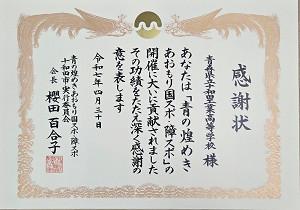 感謝状
青森県立十和田工業高等学校 様
あなたは「青の煌めき
あおもり国スポ・障スポ」の
開催に大いに貢献されました
その功績をたたえ深く感謝の
意を表します
令和七年四月三十日
青の煌めきあおもり国スポ・障スポ
十和田市実行委員会
会長 櫻田百合子